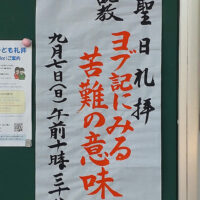 聖日礼拝
ヨブ記にみる
苦難の意味
九月七日(日)午前十時三十
ども礼拝
ご案内